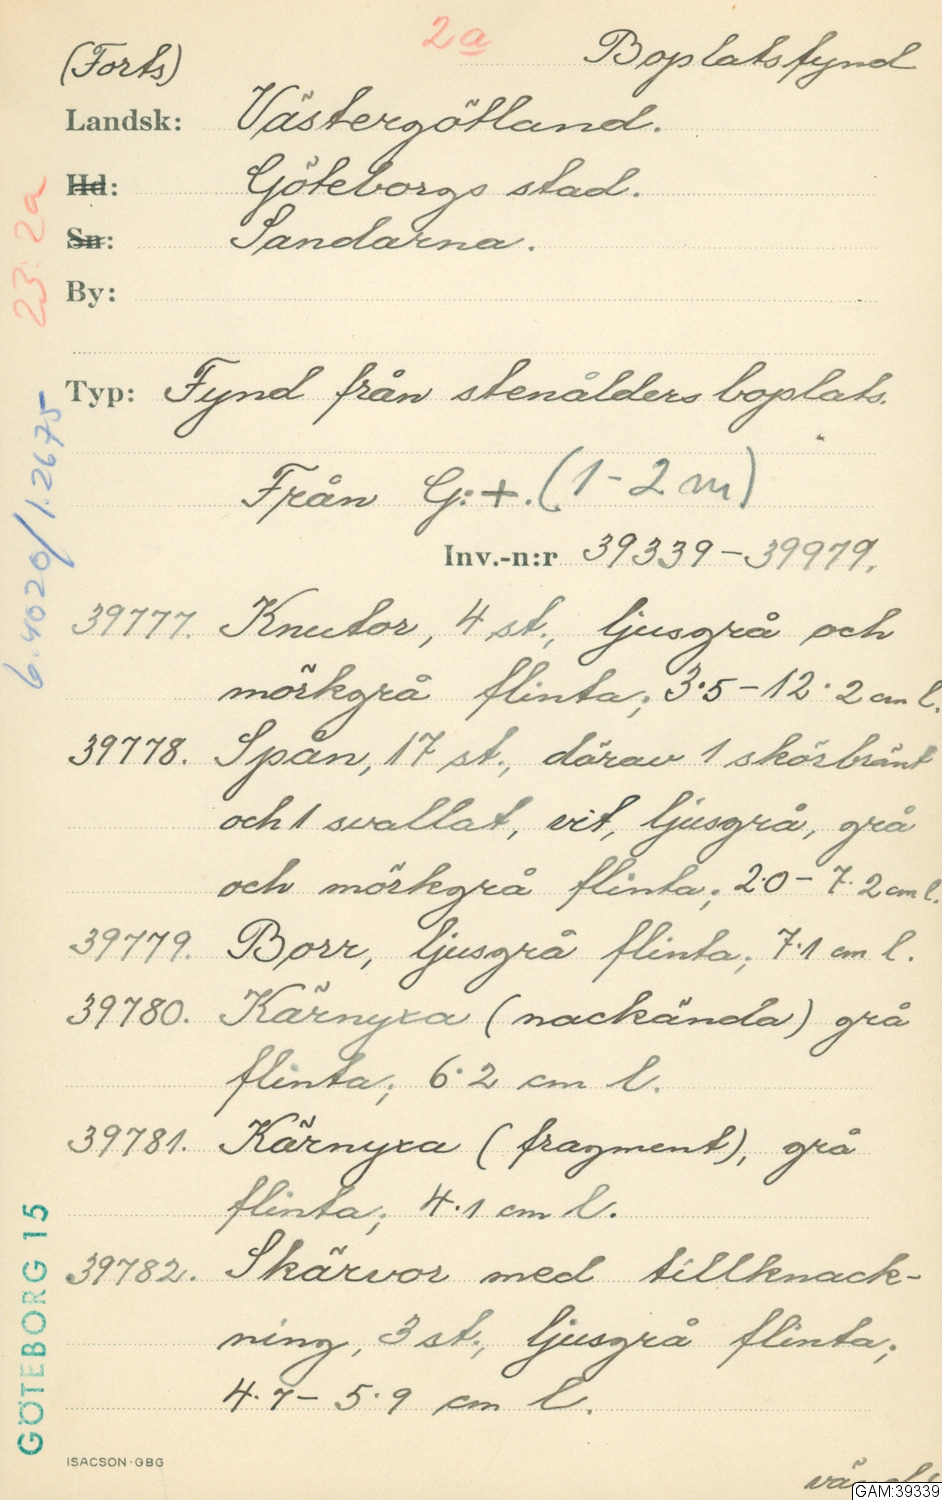 2a
(Forts)
Boplatsfynd
Landsk: Västergötland.
Hd: Göteborgs stad.
Sn: Sandarna.
By:
Typ: Fynd från stenålders boplats.
Från G:+. (1-2 m)
Inv.-n:r 39339-39979.
39777. Knutor, 4 st., ljusgrå och
mörkgrå flinta; 3.5-12.2 cm l.
39778. Spån, 17 st., därav 1 skörbränt
och 1 svallat, vit, ljusgrå, grå
och mörkgrå flinta; 2.0-7.2 cm l.
39779. Borr, ljusgrå flinta; 7.1 cm l.
39780. Kärnyxa (nackända) grå
flinta; 6.2 cm l.
39781. Kärnyxa (fragment), grå
flinta; 4.1 cm l.
39782. Skärvor med tillknack-
ning, 3 st., ljusgrå flinta;
4.7-5.9 cm l.
23:2a
6.4020/1.2675
GÖTEBORG 15
ISACSON·GBG
GAM:39339